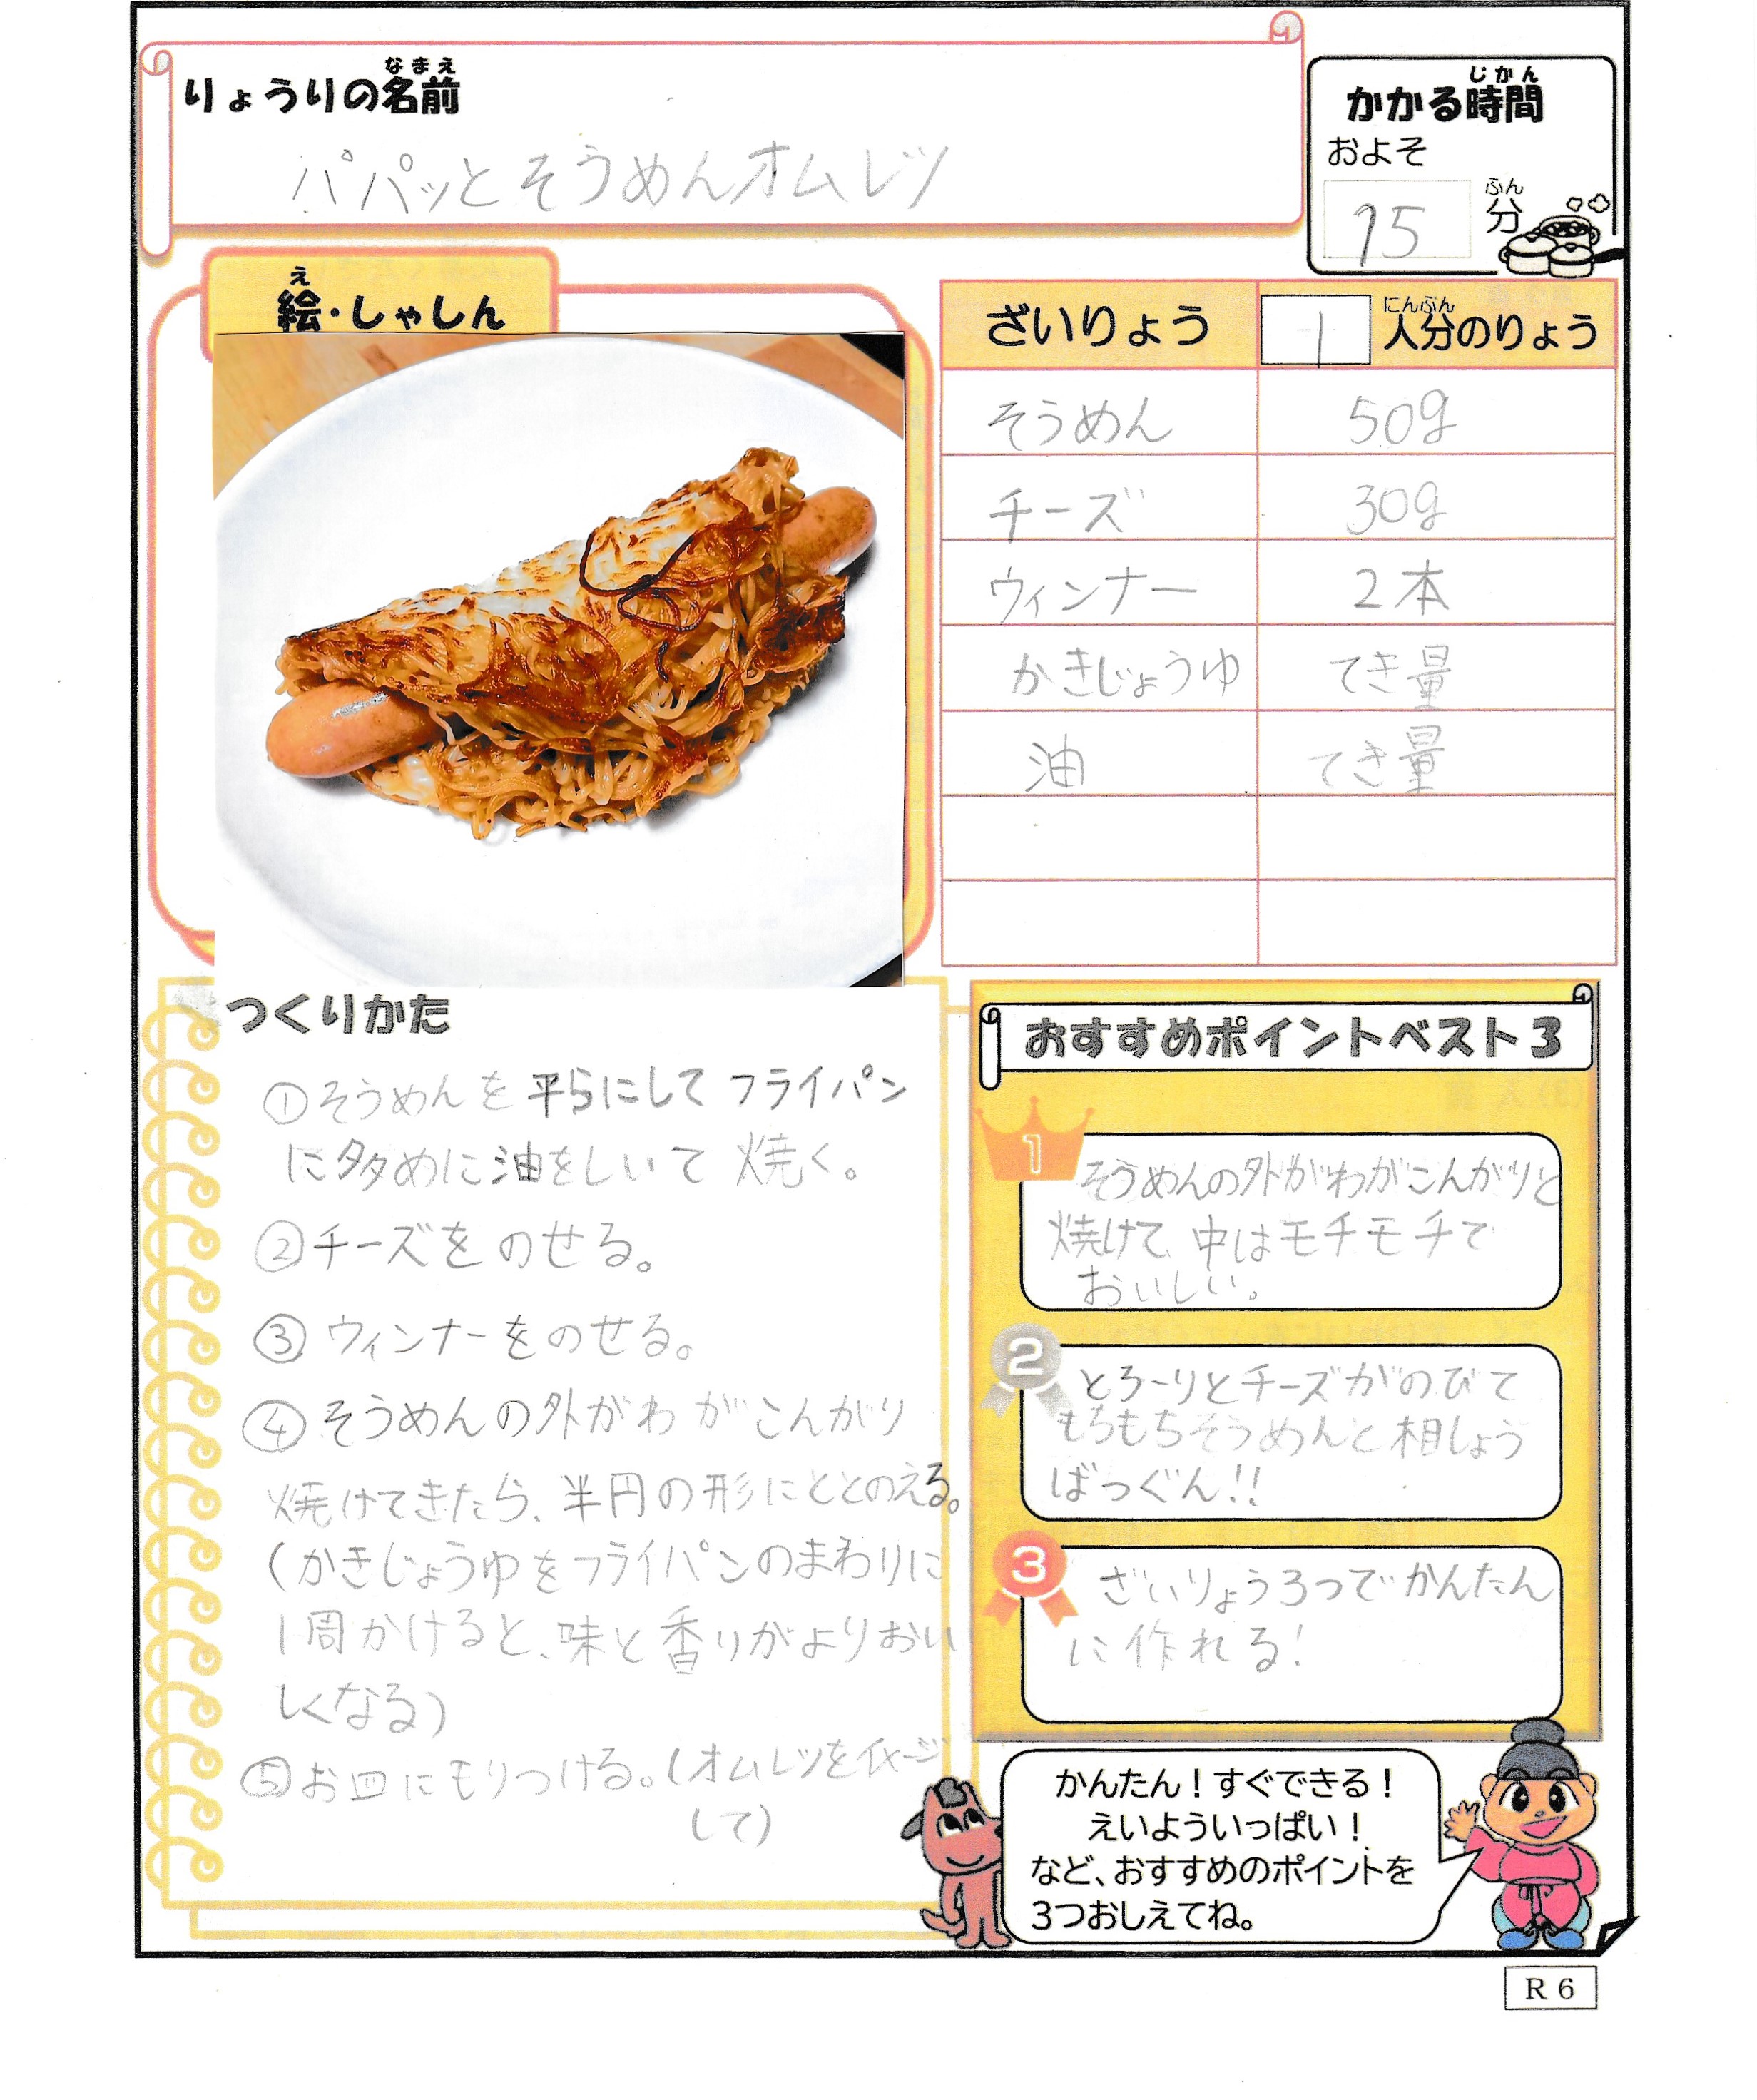 りょうりの名前
なまえ
パパッとそうめんオムレツ
かかる時間
じかん
およそ
15分
ふん
絵・しゃしん
え
ざいりょう 1人分のりょう
にんぶん
そうめん 50g
チーズ 30g
ウィンナー 2本
かきじょうゆ てき量
油 てき量
つくりかた
①そうめんを平らにしてフライパン
に多めに油をしいて焼く。
②チーズをのせる。
③ウィンナーをのせる。
④そうめんの外がわがこんがり
焼けてきたら、半円の形にととのえる。
(かきじょうゆをフライパンのまわりに
1周かけると、味と香りがよりおい
しくなる)
⑤お皿にもりつける。(オムレツをイメージ
して)
おすすめポイントベスト3
1
そうめんの外がわがこんがりと
焼けて、中はモチモチで
おいしい。
2
とろ~りとチーズがのびて
もちもちそうめんと相しょう
ばっぐん!!
3
ざいりょう3つでかんたん
に作れる!
かんたん!すぐできる!
えいよういっぱい!
など、おすすめのポイントを
3つおしえてね。
R6